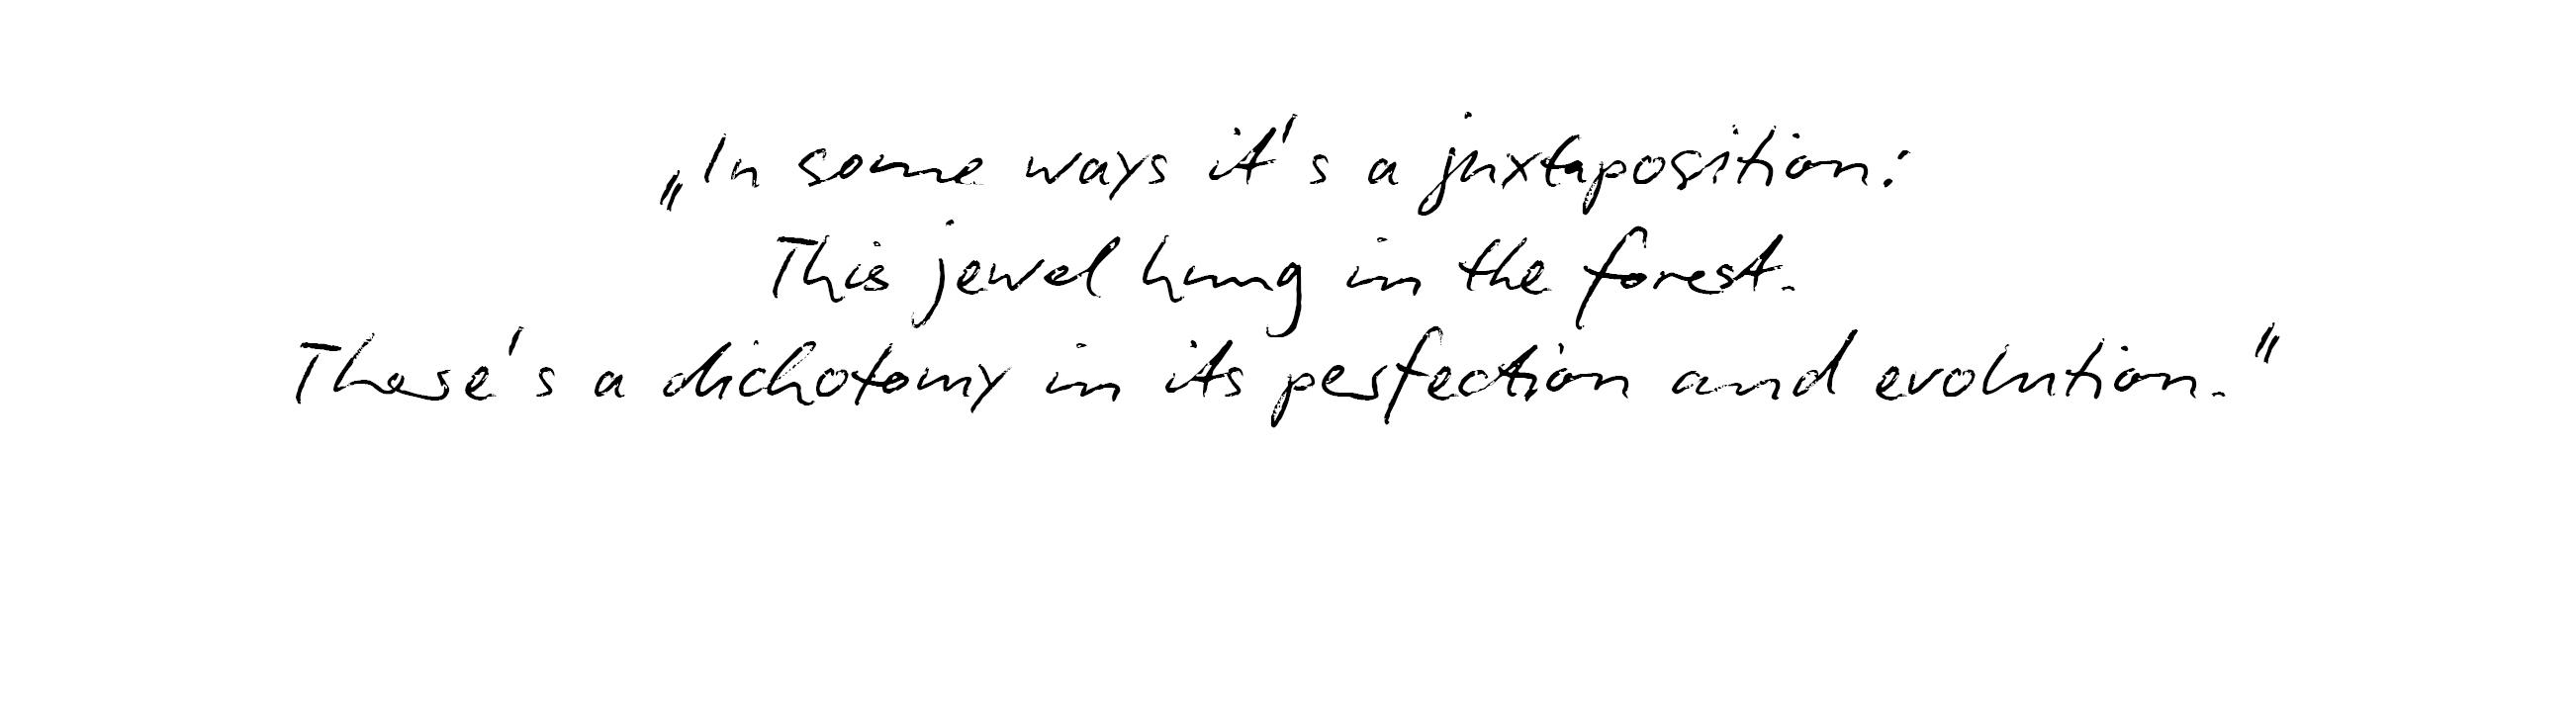 „In some ways it's a juxtaposition:
This jewel hung in the forest.
There's a dichotomy in its perfection and evolution."